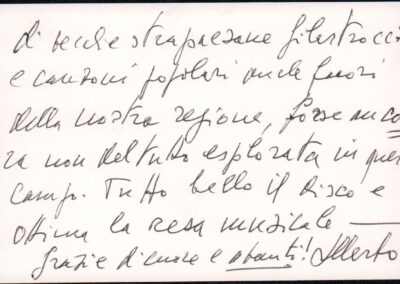 di vecchie strapaesane filastrocche
e canzoni popolari anche fuori
della nostra regione, forse anco
ra non del tutto esplorata in quel
campo. Tutto bello il disco e
ottima la resa musicale —
Grazie di cuore e avanti! Alberto